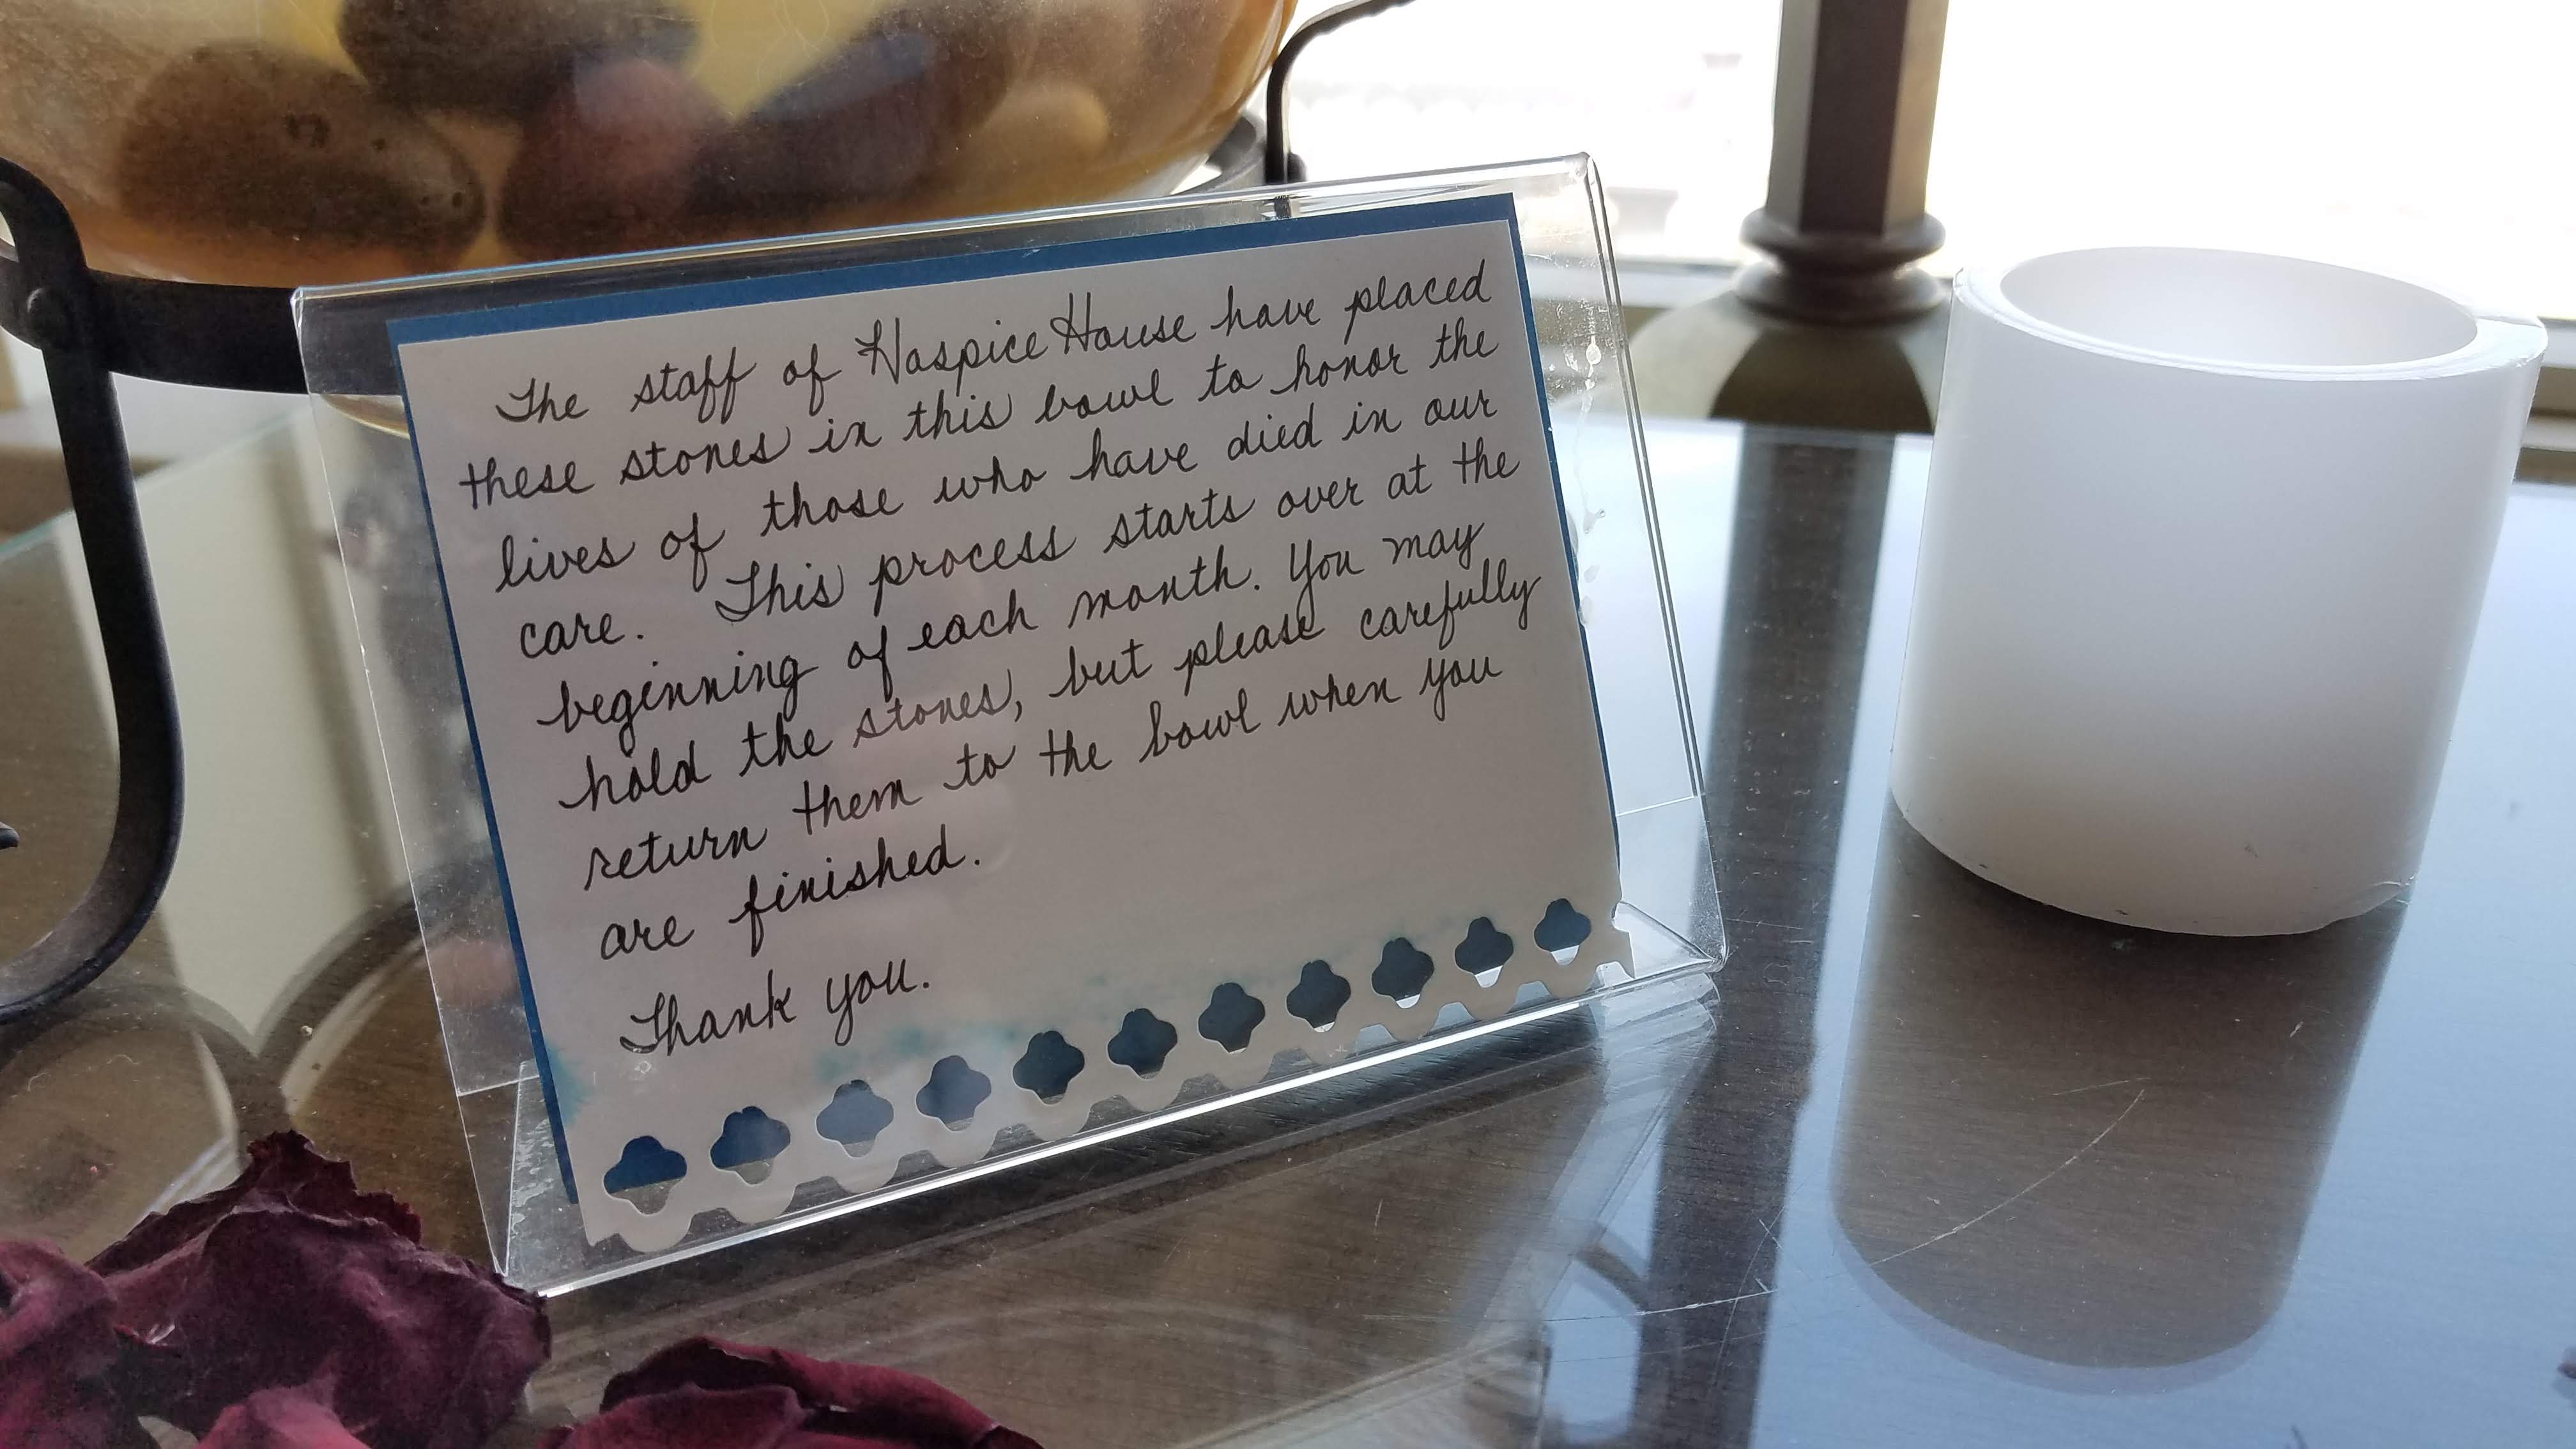 The staff of Hospice House have placed
these stones in this bowl to honor the
lives of those who have died in our
care. This process starts over at the
beginning of each month. You may
hold the stones, but please carefully
return them to the bowl when you
are finished.
Thank you.